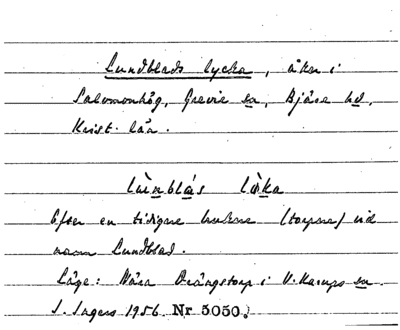 Lundblads lycka, åker i
Salomonhög, Grevie sn, Bjäre hd,
Krist. län.
lùnblás lỳka
Efter en tidigare brukare (torpare) vid
namn Lundblad.
Läge: Nära Drängstorp i V. Karups sn.
I. Ingers 1956. Nr 5050.